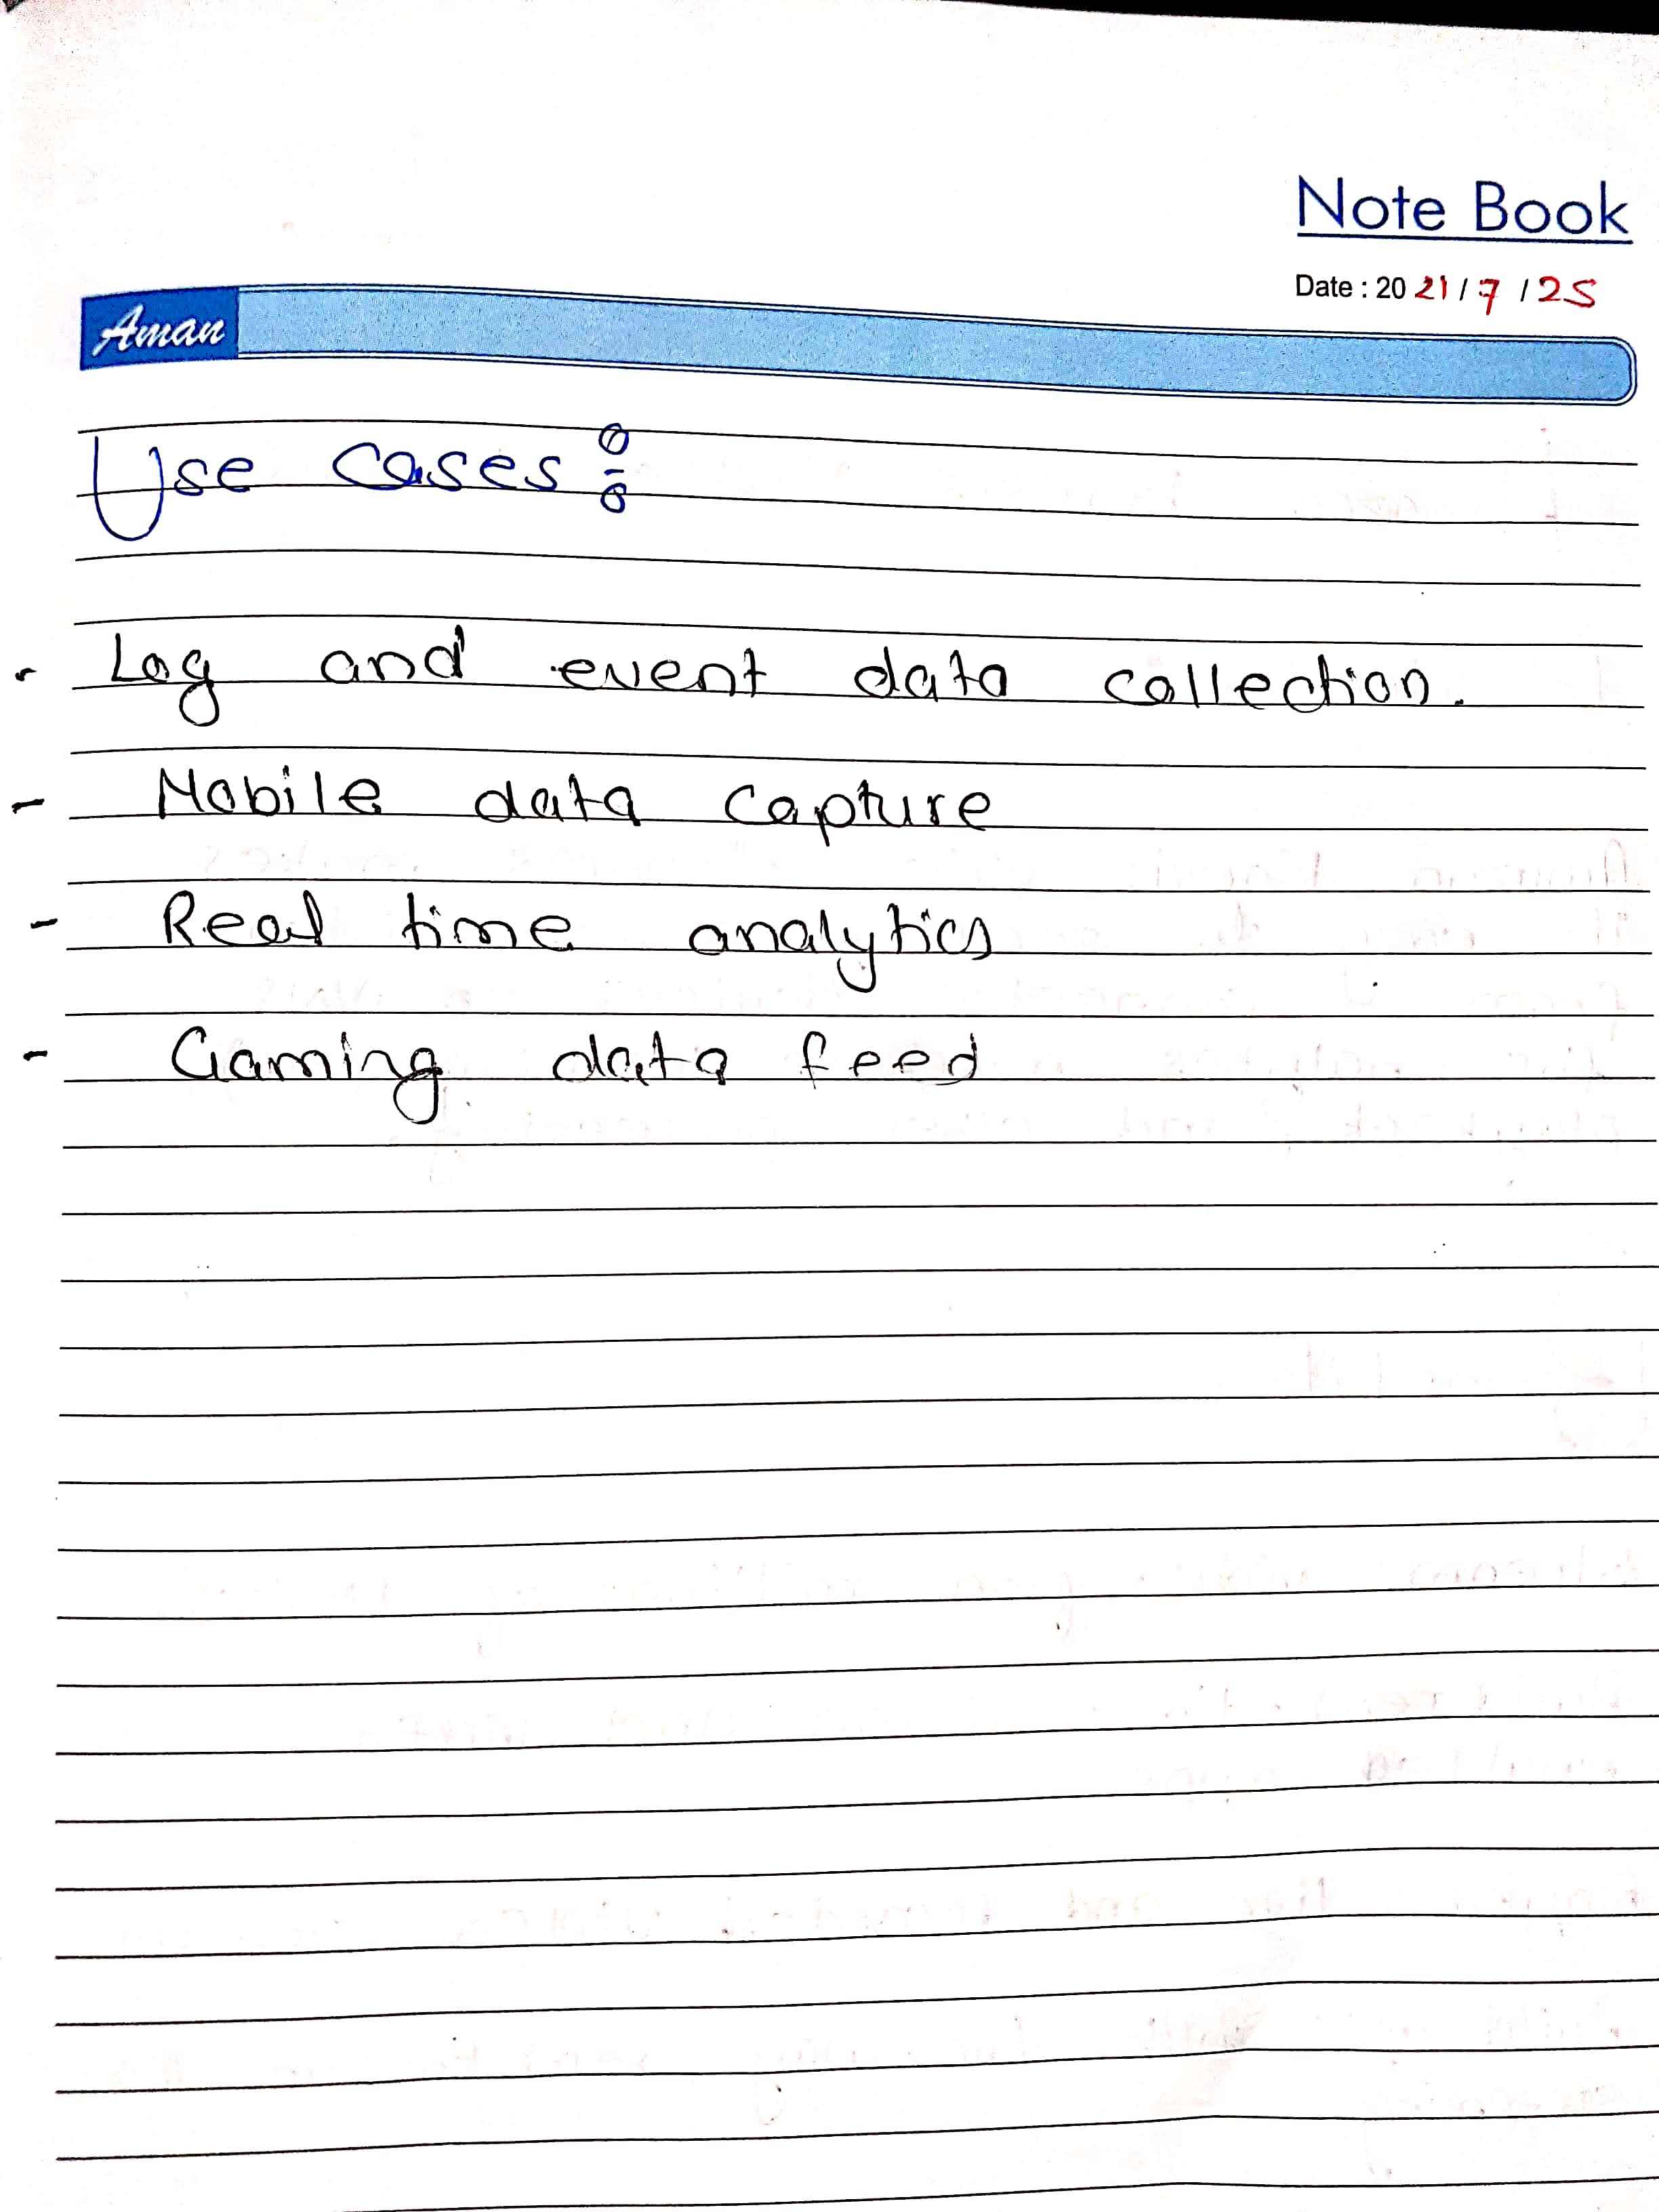 Note Book
Date : 2021/7/25
Aman
Use cases :-
- Log and event data collection.
- Mobile data capture
- Real time analytics
- Gaming data feed